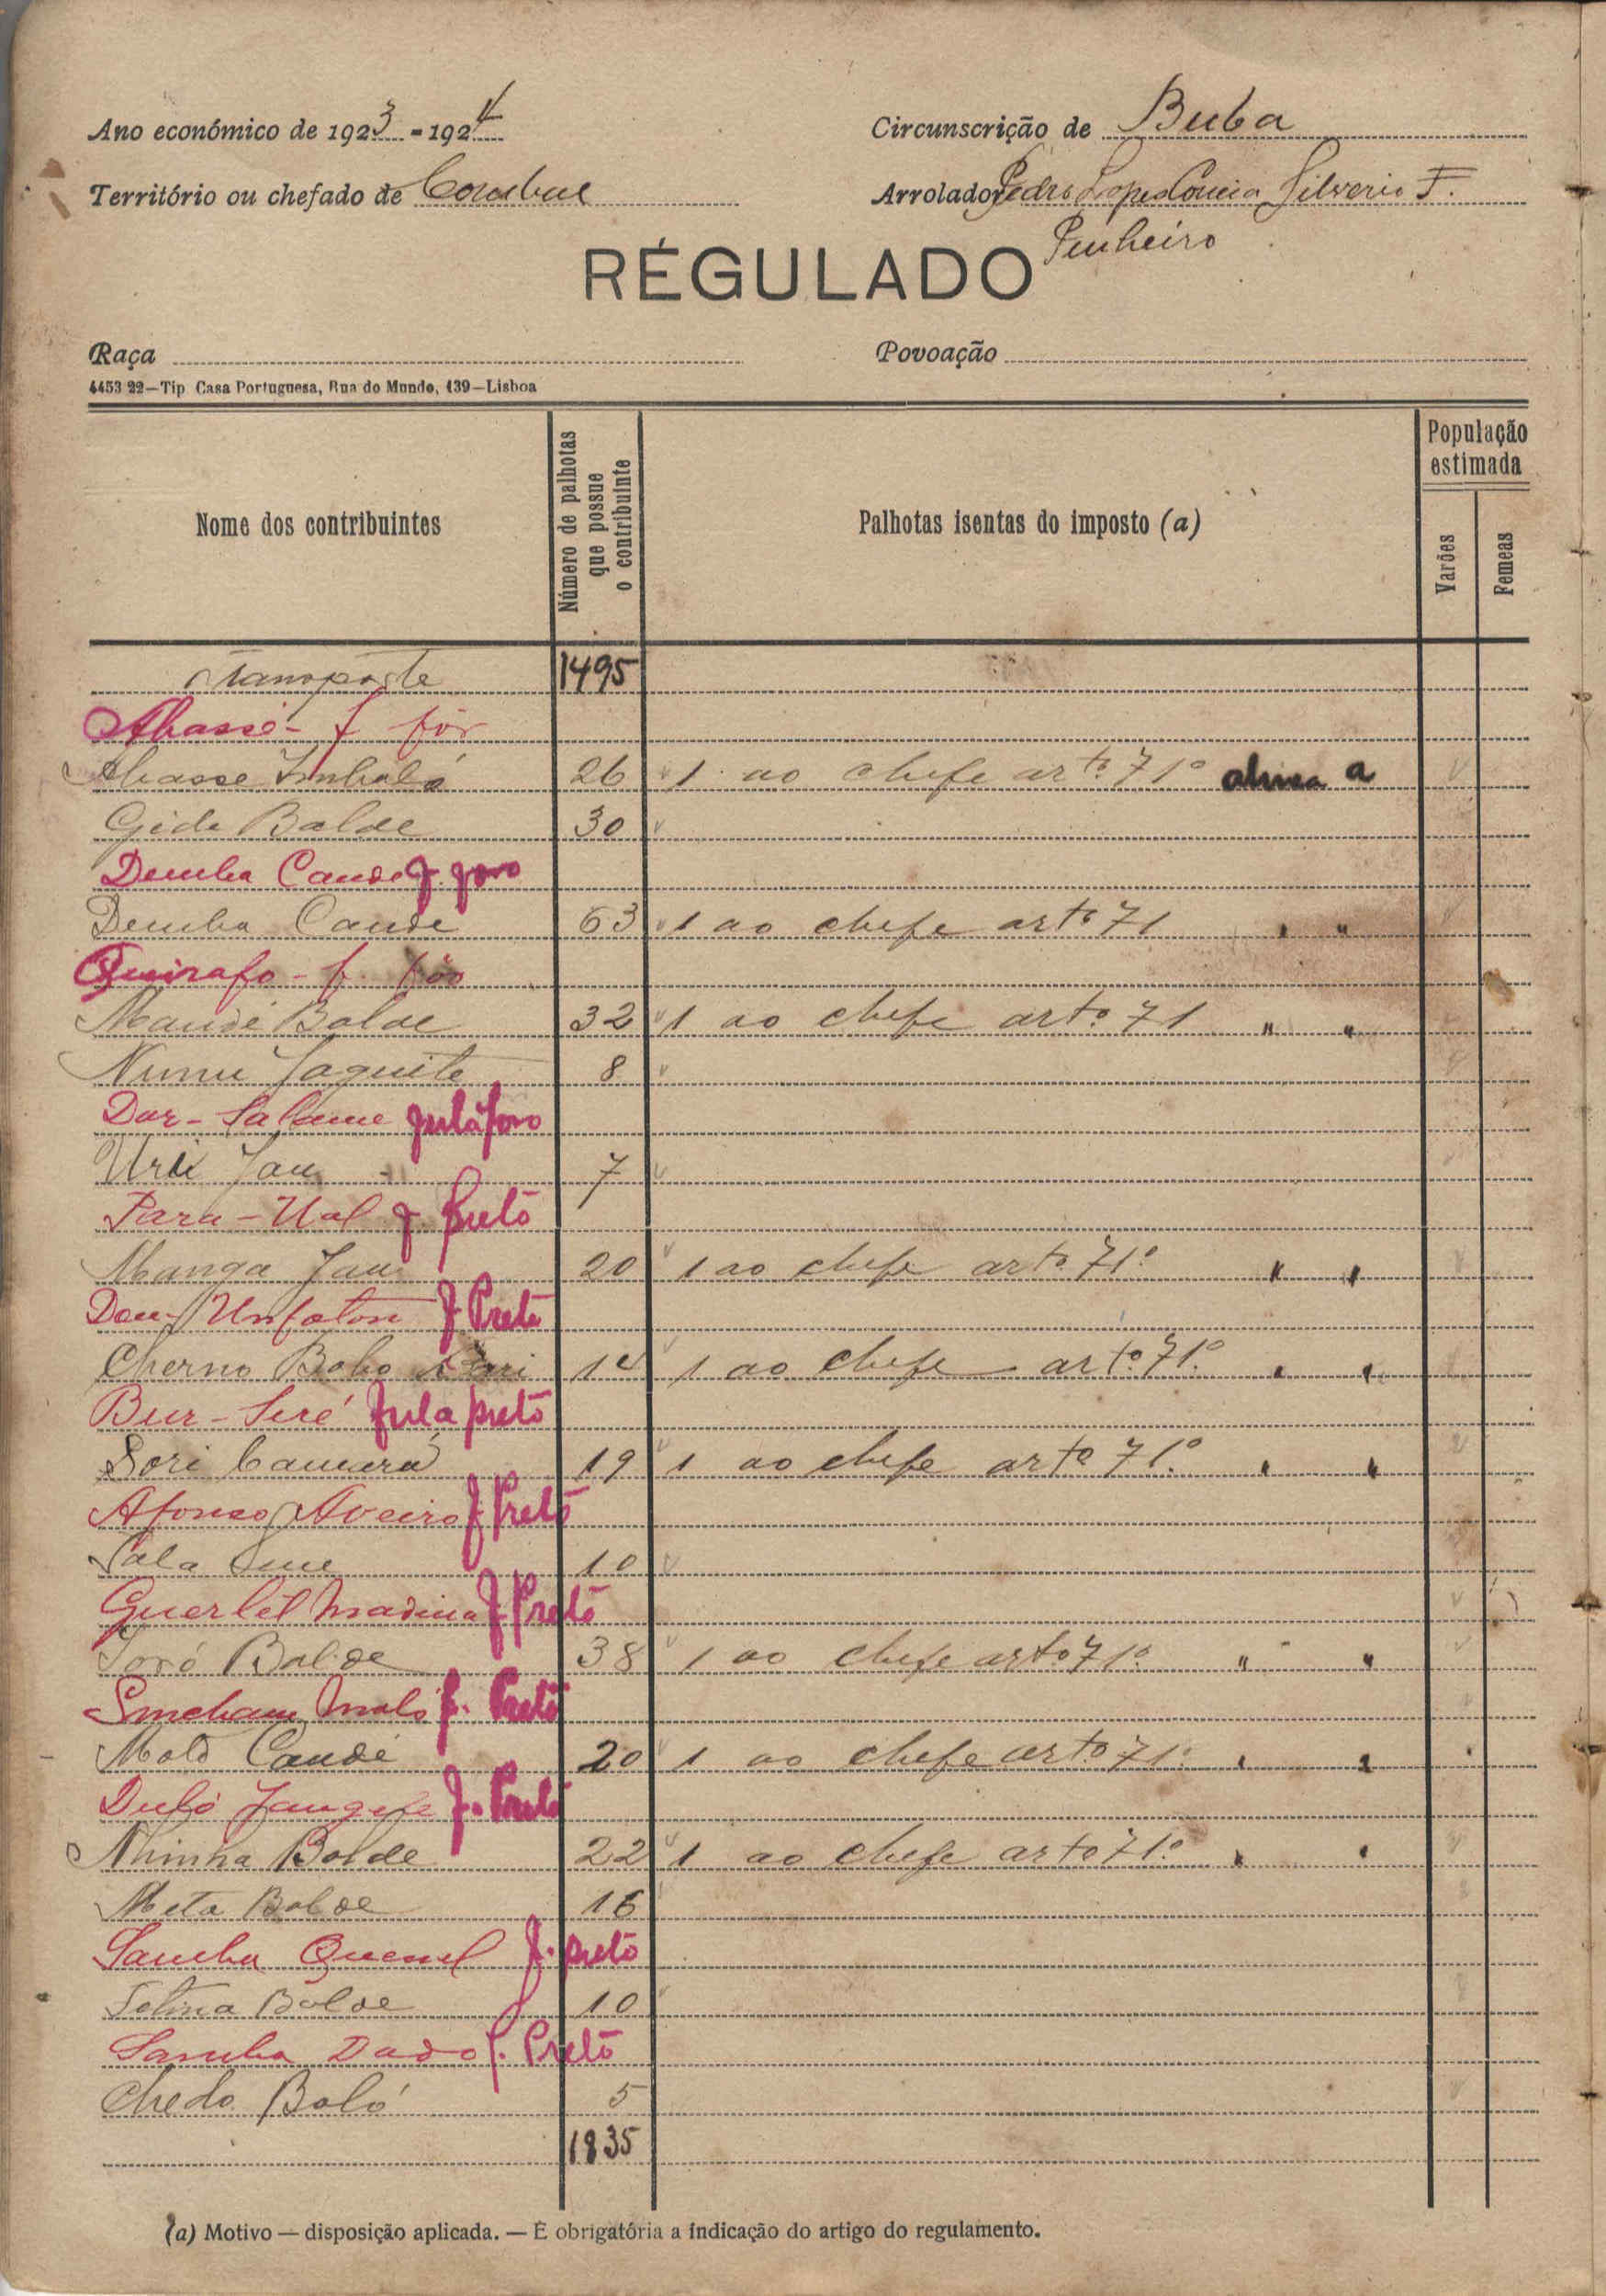 Ano económico de 1923 - 1924
Circunscrição de Buba
Território ou chefado de Corubal
Arrolador Pedro Lopes Correia Silverio F.
Pinheiro
RÉGULADO
Raça
Povoação
4453 22—Tip Casa Portuguesa, Rua do Mundo, 139—Lisboa
Nome dos contribuintes
Número de palhotas que possue o contribuinte
Palhotas isentas do imposto (a)
População estimada
Varões
Femeas
Transporte 1495
Abassé - f
Abasse Imbaló 26 1 ao chefe artº 71º alinea a
Gide Balde 30
Demba Cande f. foro
Demba Cande 63 1 ao chefe artº 71 " "
Quirafo - f.
Maude Balde 32 1 ao chefe artº 71 " "
Nunu Jaquite 8
Dar - Salame fula foro
Jau 7
Para - Ual f. preto
Manga Jau 20 1 ao chefe artº 71º " "
f Preto
Cherno Bobo 14 1 ao chefe artº 71º " "
Bur - Seré fula preto
Sori Camará 19 1 ao chefe artº 71º " "
Afonso Aveiro f Preto
10
Guerlel Madina f Preto
Joró Balde 38 1 ao chefe artº 71º " "
Sincham Maló f. Preto
Molo Candé 20 1 ao chefe artº 71º " "
Duló f. Preto
Nhinha Balde 22 1 ao chefe artº 71º " "
Meta Balde 16
Samba Quenel f. preto
Balde 10
Samba Dado f. Preto
Chedo Baló 5
1835
(a) Motivo — disposição aplicada. — É obrigatória a indicação do artigo do regulamento.